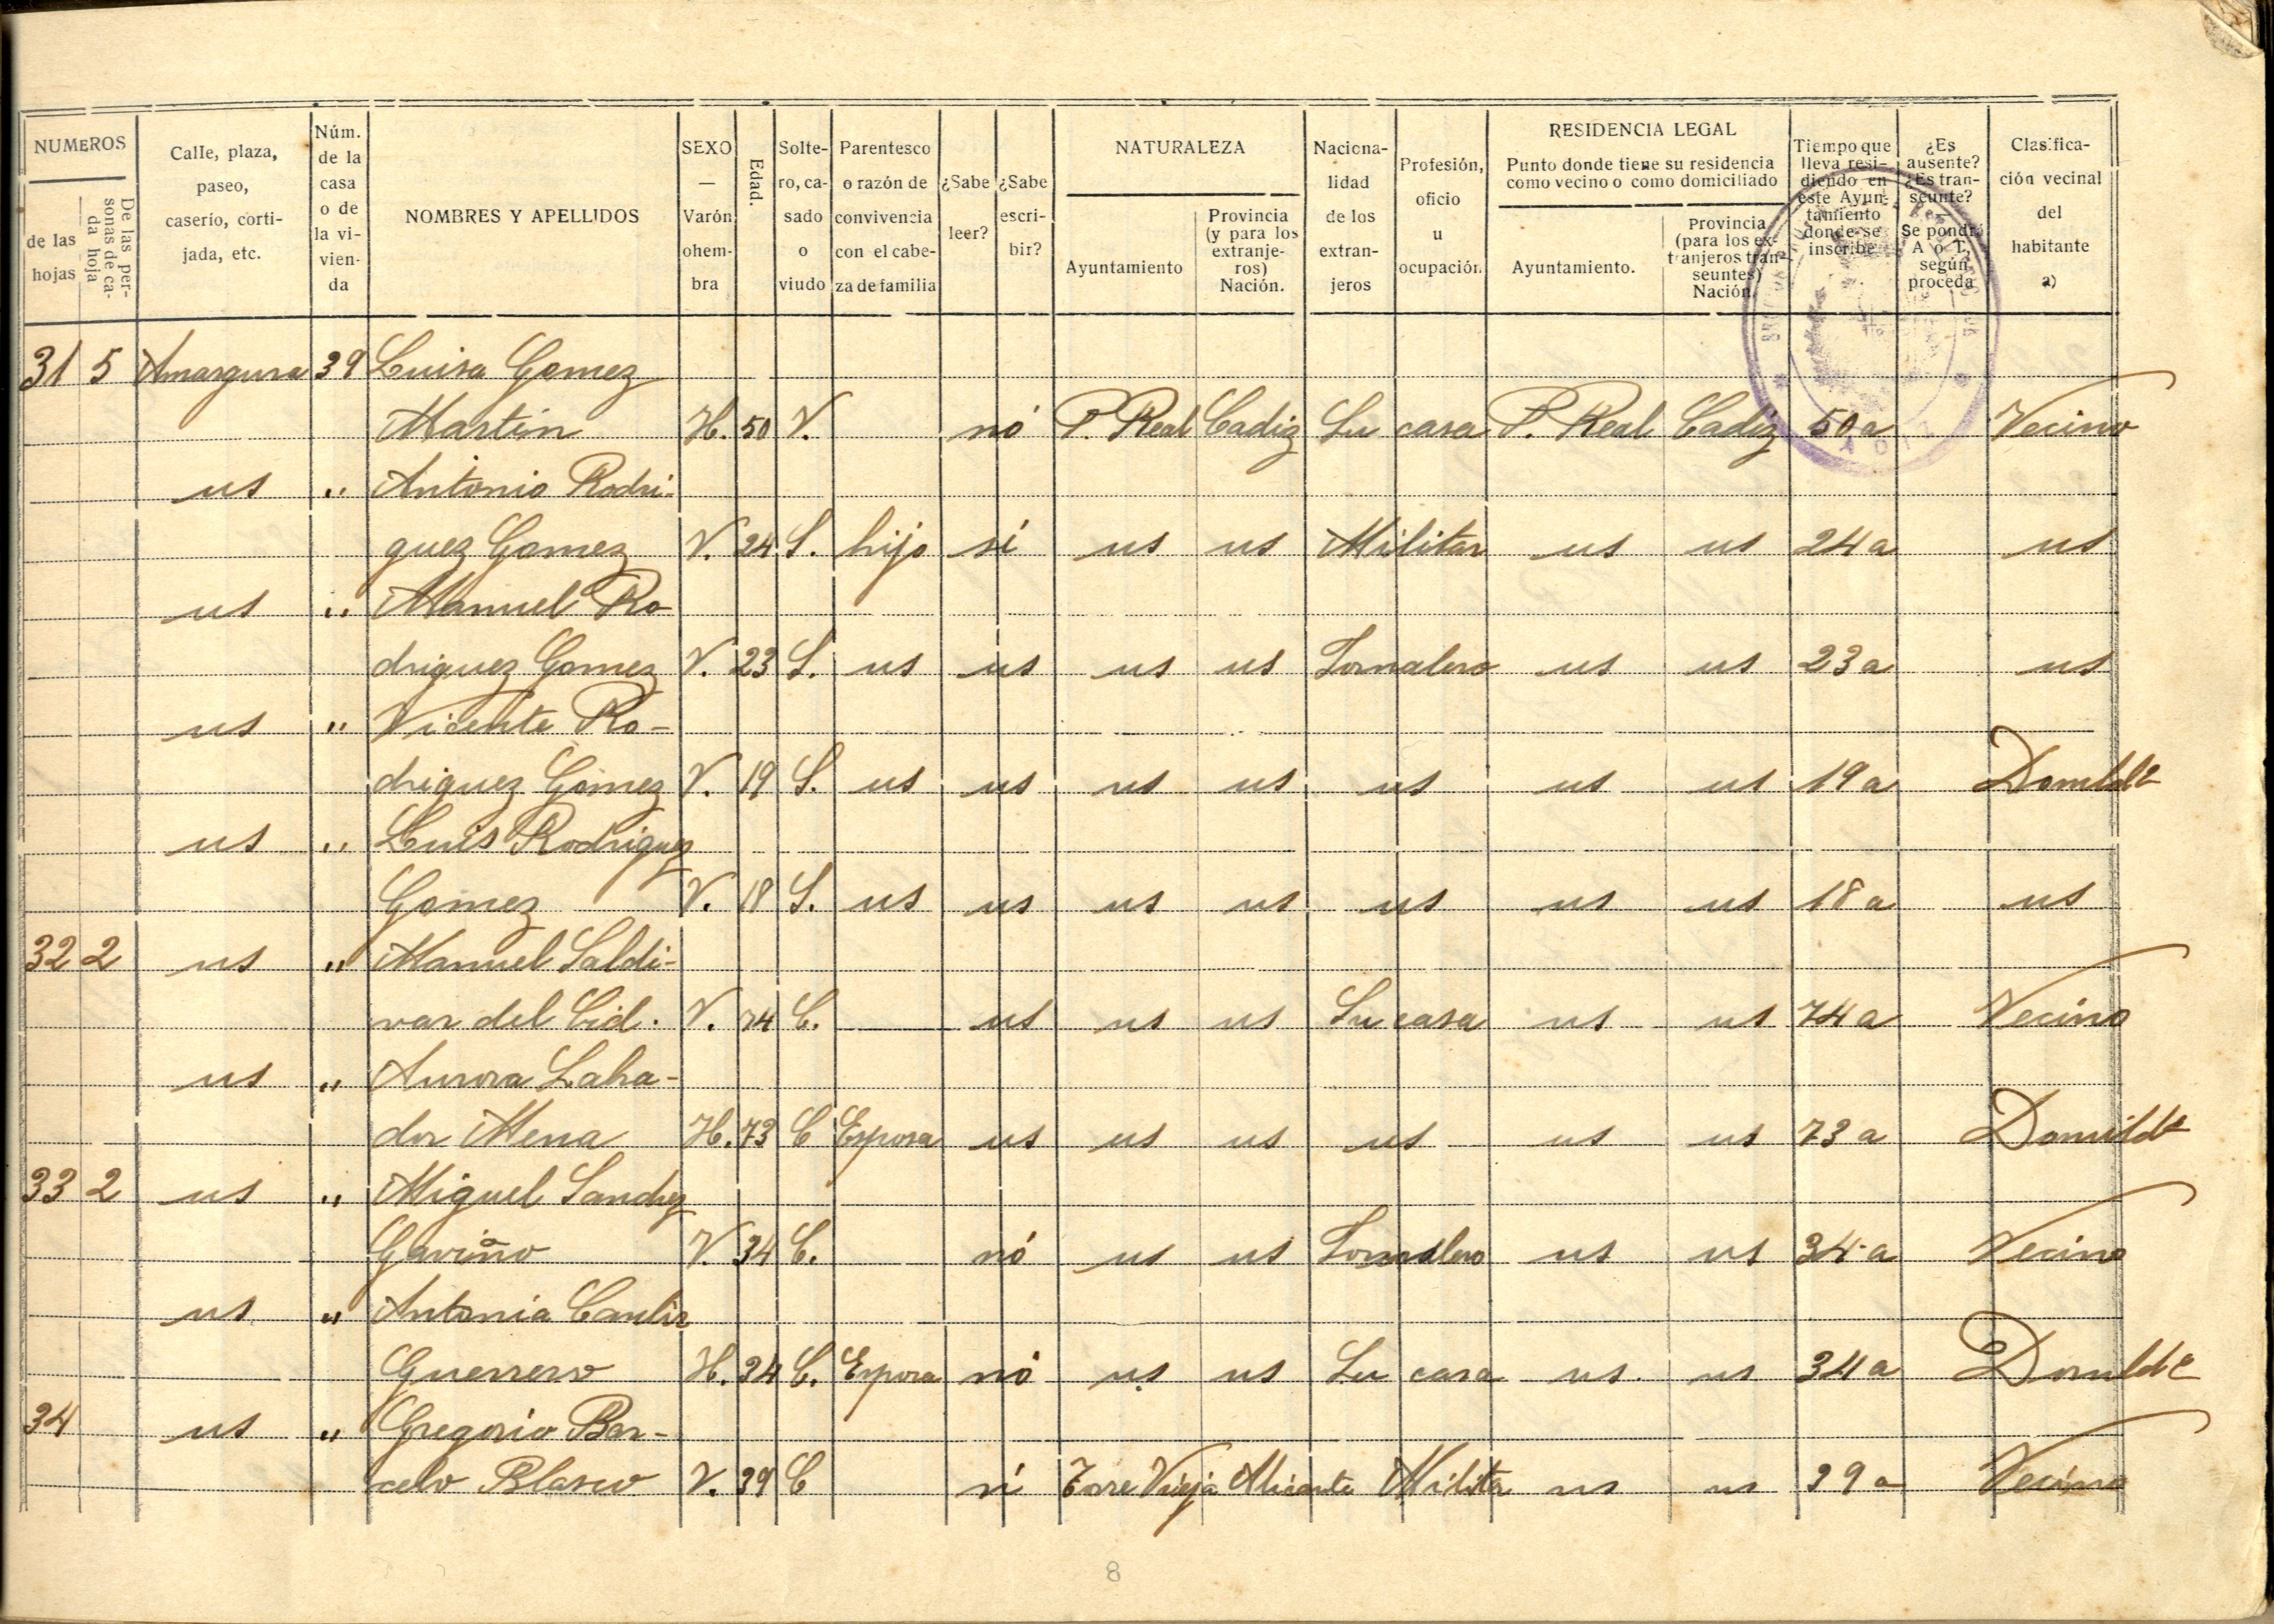 NUMEROS
de las hojas
De las personas de cada hoja
Calle, plaza, paseo, caserío, cortijada, etc.
Núm. de la casa o de la vivienda
NOMBRES Y APELLIDOS
SEXO — Varón ohembra
Edad.
Soltero, casado o viudo
Parentesco o razón de convivencia con el cabeza de familia
¿Sabe leer?
¿Sabe escribir?
NATURALEZA
Ayuntamiento
Provincia (y para los extranjeros) Nación.
Nacionalidad de los extranjeros
Profesión, oficio u ocupación
RESIDENCIA LEGAL
Punto donde tiene su residencia como vecino o como domiciliado
Ayuntamiento.
Provincia (para los extranjeros transeuntes) Nación.
Tiempo que lleva residiendo en este Ayuntamiento donde se inscribe
¿Es ausente? ¿Es transeunte? Se pondrá A o T. según proceda
Clasificación vecinal del habitante a)
31 5 Amargura 39 Luisa Gomez
Martin H. 50 V. nó P. Real Cadiz Su casa P. Real Cadiz 50 a Vecino
us " Antonio Rodri-
guez Gomez V. 24 S. hijo sí us us Militar us us 24 a us
us " Manuel Ro-
driguez Gomez V. 23 S. us us us us Jornalero us us 23 a us
us " Vicente Ro-
driguez Gomez V. 19 S. us us us us us us us 19 a
us " Luis Rodriguez
Gomez V. 18 S. us us us us us us us 18 a us
32 2 us " Manuel Saldi-
var del Cid. V. 74 C. — us us us Su casa us us 74 a Vecino
us " Aurora Laha-
dor Mena H. 73 C Esposa us us us us us us 73 a
33 2 us " Miguel Sanchez
Gaviño V. 34 C. nó us us Jornalero us us 34 a Vecino
us " Antonia
Guerrero H. 34 C. Esposa nó us us Su casa us us 34 a
34 us " Gregorio Bar-
celo Blasco V. 39 C sí Torre Vieja Alicante Militar us us 39 a Vecino
8